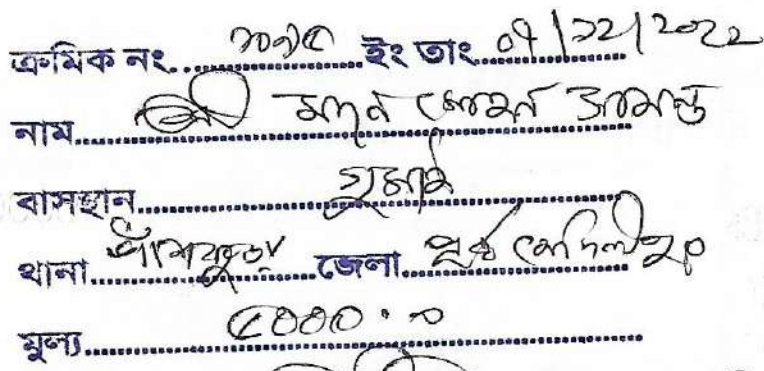 ক্রমিক নং ৭০৭৫ ইং তাং ০৭/১২/২০২২
নাম শ্রী মদন মোহন সামন্ত
বাসস্থান গুমাই
থানা পাঁশকুড়া জেলা পূর্ব মেদিনীপুর
মূল্য ৫০০০.০